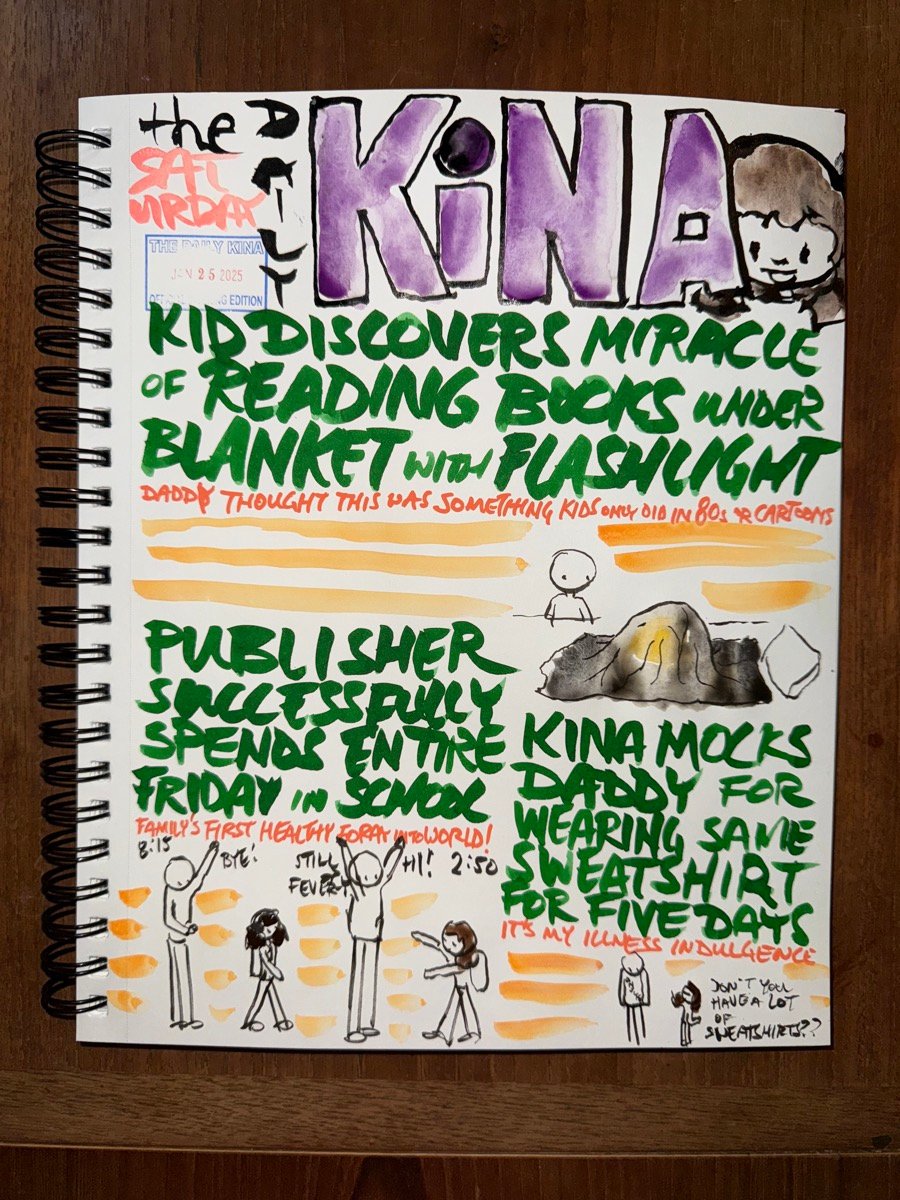 the DAILY KiNA
SATURDAY
THE DAILY KINA
JAN 25 2025
OFFICIAL EDITION
KID DISCOVERS MIRACLE
OF READING BOOKS UNDER
BLANKET WITH FLASHLIGHT
DADDY THOUGHT THIS WAS SOMETHING KIDS ONLY DID IN 80s OR CARTOONS
PUBLISHER
SUCCESSFULLY
SPENDS ENTIRE
FRIDAY IN SCHOOL
FAMILY'S FIRST HEALTHY FORAY INTO WORLD!
8:15
BYE!
STILL
FEVERY
HI!
2:50
KINA MOCKS
DADDY FOR
WEARING SAME
SWEATSHIRT
FOR FIVE DAYS
IT'S MY ILLNESS INDULGENCE
DON'T YOU
HAVE A LOT
OF
SWEATSHIRTS??